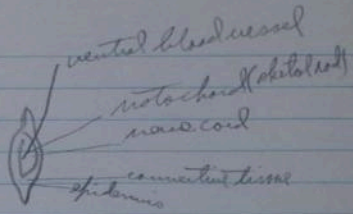 ventral blood vessel
notochord (skeletal rod)
nerve cord
connective tissue
epidermis